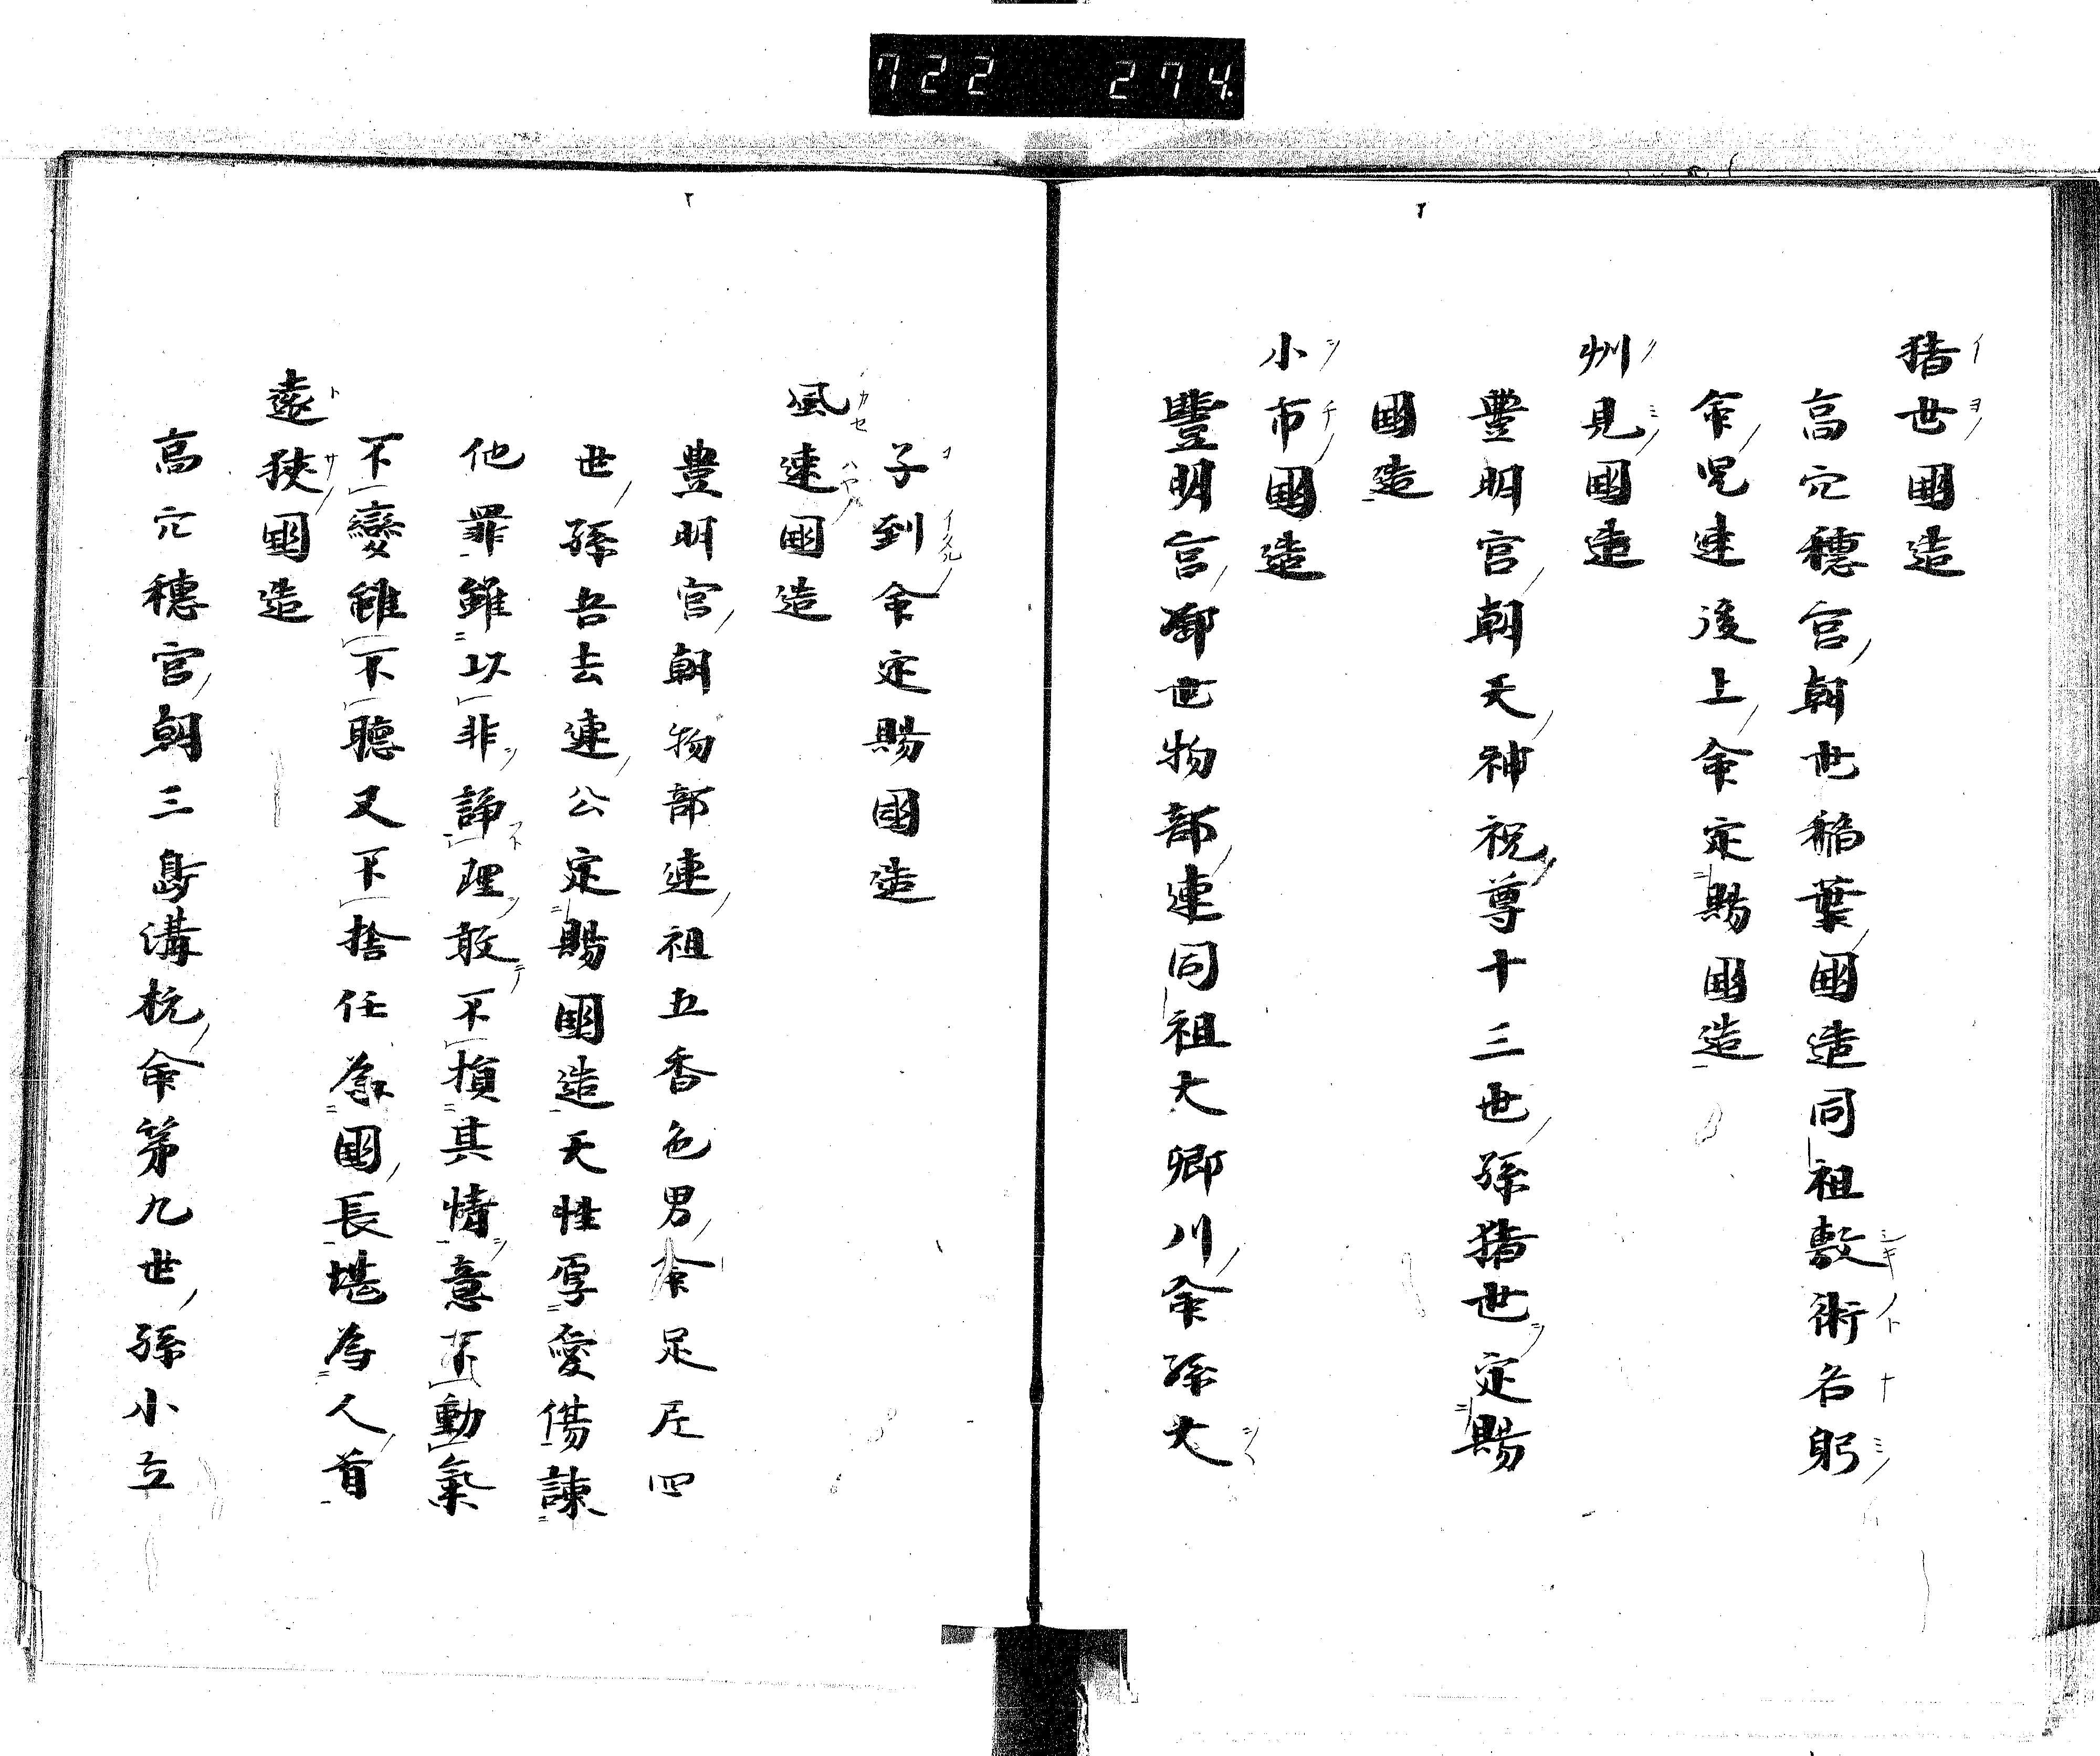 722 274
猪世國造
高穴穗宮朝世稲葉國造同祖敷術名躬
命児速後上命定賜國造
州見國造
豊明宮朝天神祝尊十三世孫猪世定賜
國造
小市國造
豐明宮御世物部連同祖大卿川命孫大
子到命定賜國造
風速國造
豊明宮朝物部連祖五香色男命足尼四
世孫吾去連公定賜國造天性厚愛傷諫
他罪雖以非諍理敢不損其情意不動氣
不變雖不聽又不捨任為國長堪為人首
遠狹國造
高穴穗宮朝三島溝杭命第九世孫小立